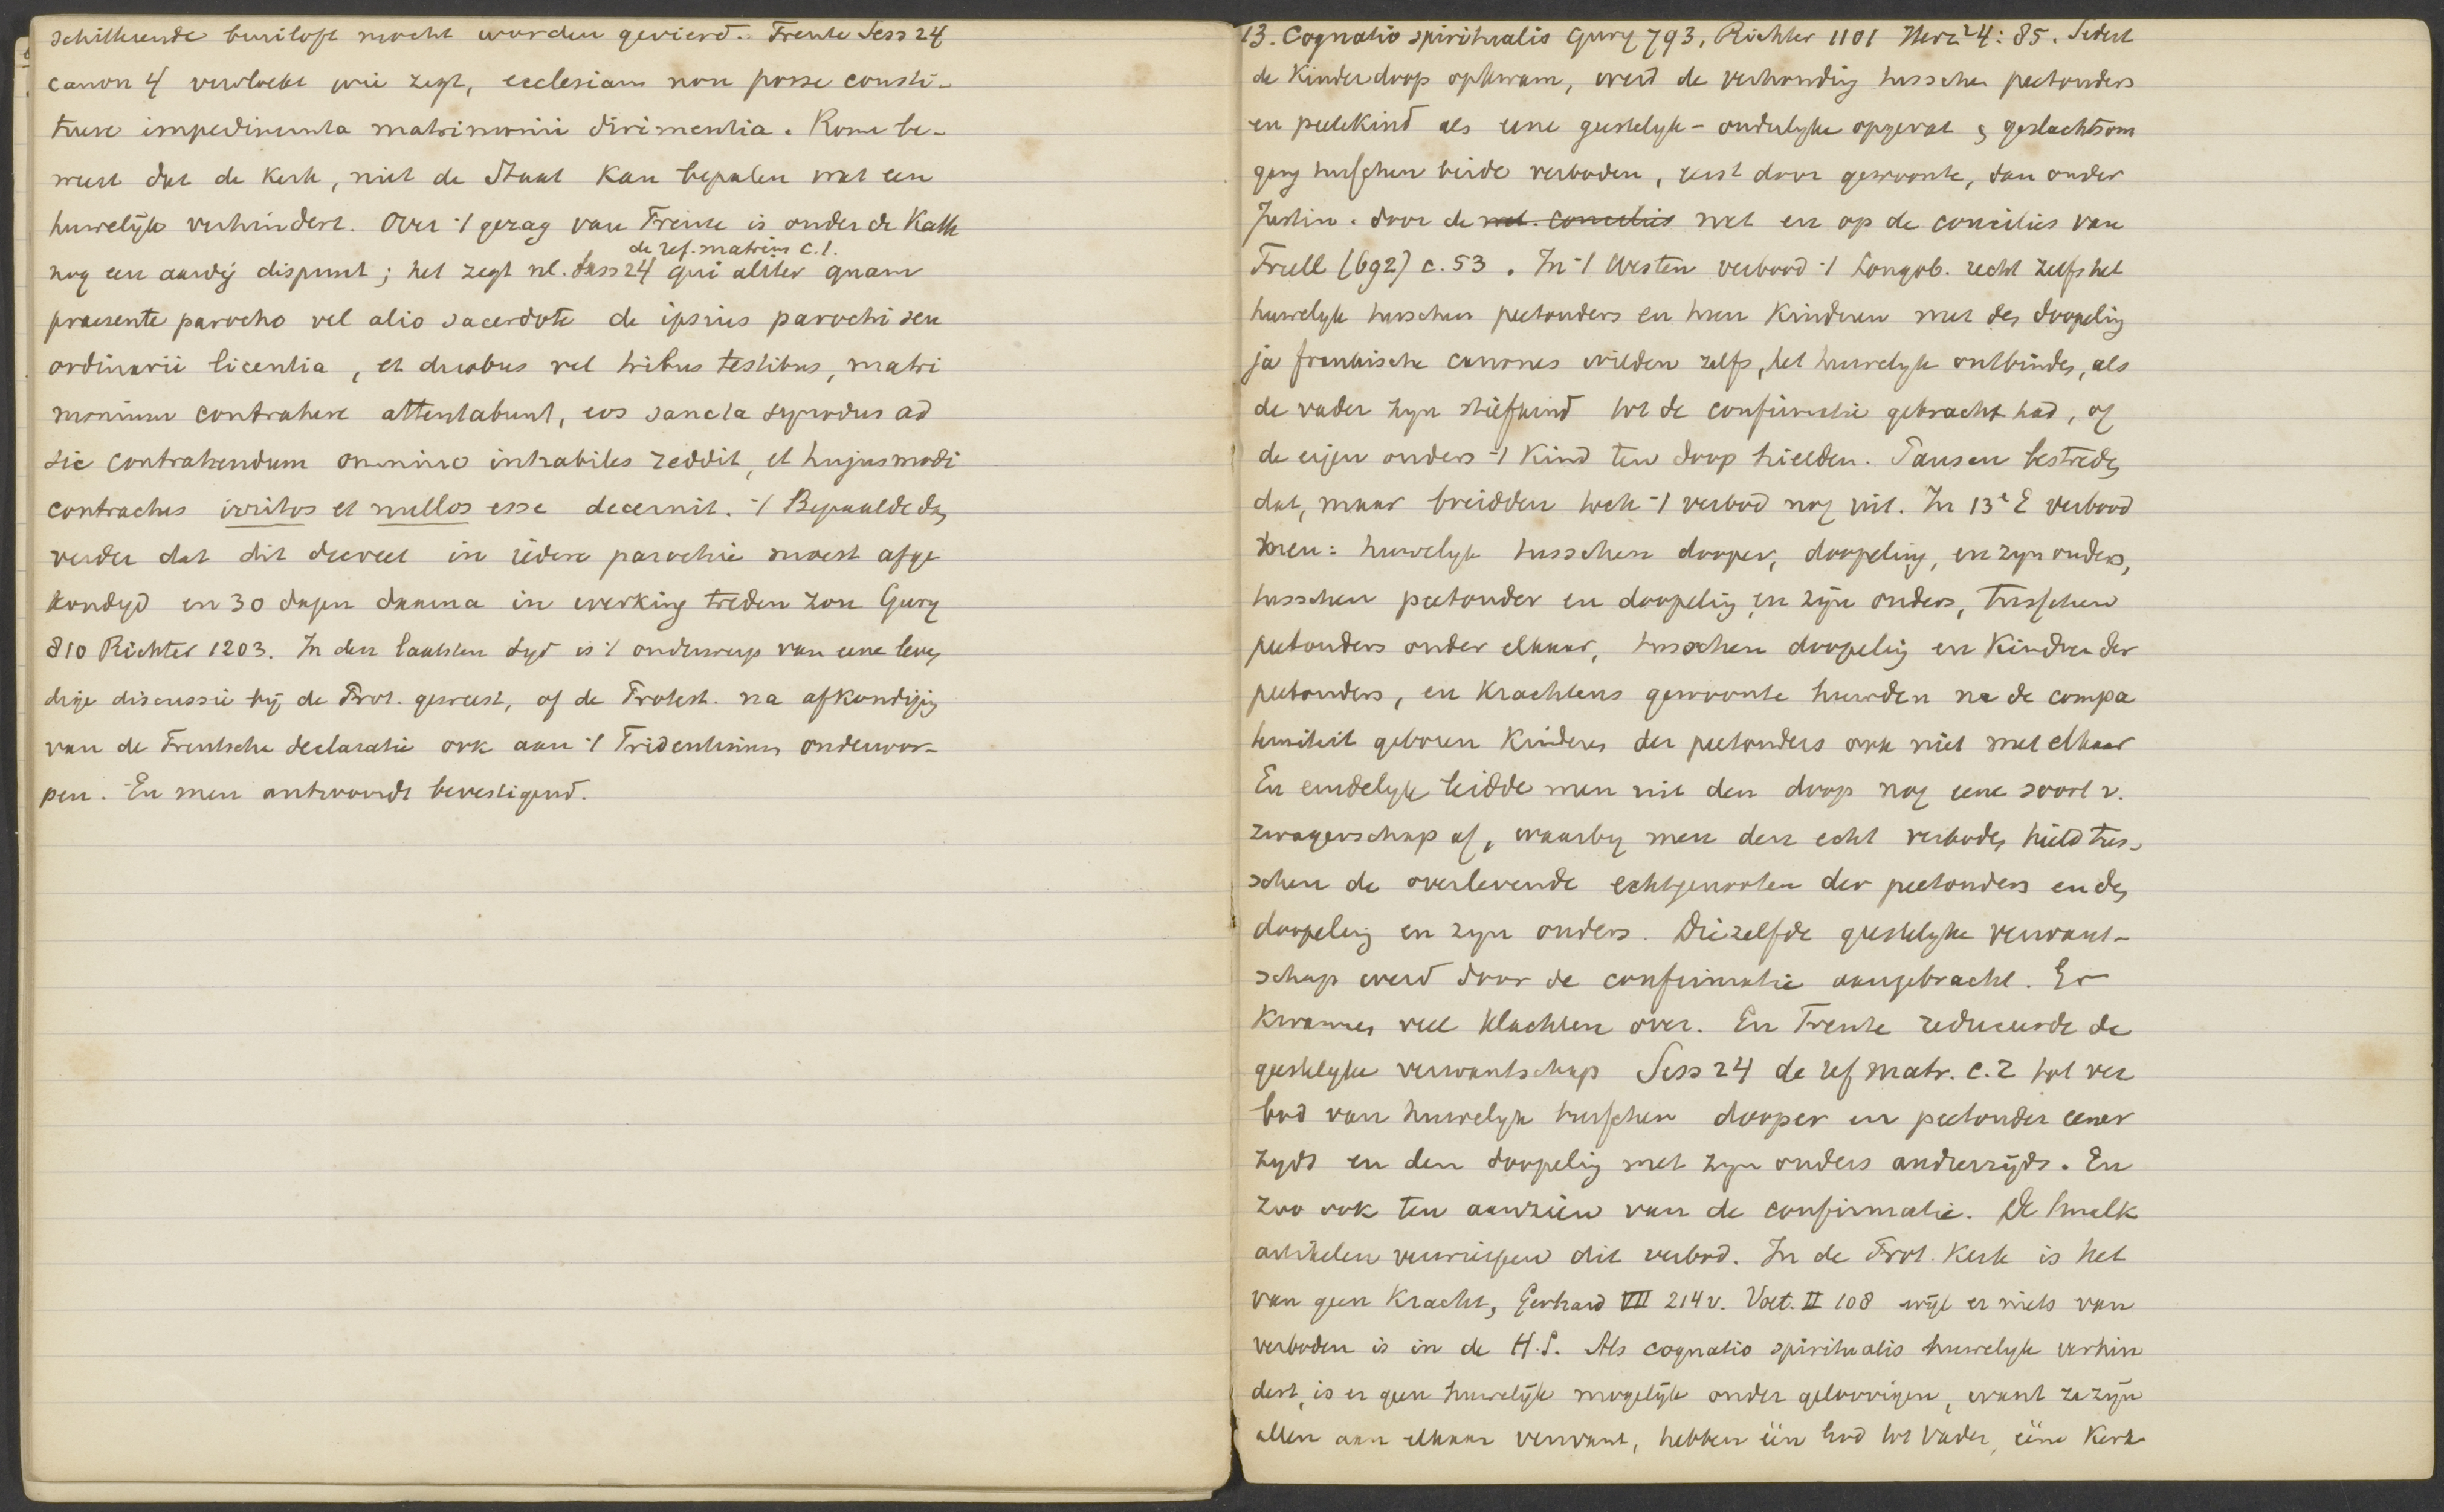 schitterende bruiloft mocht worden gevierd. Trente Sess 24
canon 4 vervloekt wie zegt, ecclesiam non posse consti-
tuere impedimenta matrimonii dirimentia. Rome be-
weert dat de Kerk, niet de Staat kan bepalen wat een
huwelijk verhindert. Over 't gezag van Trente is onder de Kath
de ref. matrim c. 1.
nog een aardig dispuut; het zegt nl. Sess 24 qui aliter quam
praesente parocho vel alio sacerdote de ipsius parochi seu
ordinarii licentia, et duobus vel tribus testibus, matri
monium contrahere attentabunt, eos sancta synodus ad
sic contrahendum omnino inhabiles reddit, et hujusmodi
contractus irritos et nullos esse decernit. 't Bepaalde dan
verder dat dit decreet in iedere parochie moest afge
kondigd en 30 dagen daarna in werking treden zou Gury
810 Richter 1203. In den laatsten tyd is 't onderwerp van eene leven
dige discussie bij de Prot. geweest, of de Protest. na afkondiging
van de Trentsche declaratie ook aan 't Tridentinum onderwor-
pen. En men antwoordt bevestigend.
13. Cognatio spiritualis Gury 793, Richter 1101 Herz² 4: 85. Sedert
de Kinderdoop opkwam, werd de verhouding tusschen peetouders
en peetekind als eene geestelyk-ouderlyke opgevat & geslachtsom
gang tusschen beide verboden, eerst door gewoonte, dan onder
Justin. door de wet. concilies wet en op de concilies van
Trull (692) c. 53. In 't Westen verbood 't Longob. recht zelfs het
huwelyk tusschen peetouders en hun Kinderen met den doopeling
ja frankische canones wilden zelfs, het huwelyk ontbinden, als
de vader zyn stiefkind tot de confirmatie gebracht had, of
de eigen ouders 't Kind ten doop hielden. Pausen bestreden
dat, maar breidden toch 't verbod nog uit. In 13e E verbood
men: huwelyk tusschen dooper, doopeling, en zyn ouders,
tusschen peetouder en doopeling en zijn ouders, tusschen
peetouders onder elkaar, tusschen doopeling en Kindren der
peetouders, en Krachtens gewoonte huwden na de compa
terniteit geboren Kinderen der peetouders ook niet met elkaar
En eindelyk leidde men uit den doop nog eene soort v.
zwagerschap af, waarby men den echt verboden hield tus-
schen de overlevende echtgenooten der peetouders en den
doopeling en zyn ouders. Diezelfde geestelyke verwant-
schap werd door de confirmatie aangebracht. Er
kwamen veel klachten over. En Trente reduceerde de
geestelyke verwantschap Sess 24 de ref matr. c. 2 tot ver
bod van huwelyk tusschen dooper en peetouder eener
zyds en den doopeling met zyn ouders anderzijds. En
zoo ook ten aanzien van de confirmatie. De Smalk
artikelen verwierpen dit verbod. In de Prot. Kerk is het
van geen Kracht, Gerhard VII 214 v. Voet. II 108 wijl er niets van
verboden is in de H.S. Als cognatio spiritualis huwelyk verhin
dert, is er geen huwelijk mogelijk onder geloovigen, want ze zijn
allen aan elkaar verwant, hebben één God tot Vader, ééne Kerk